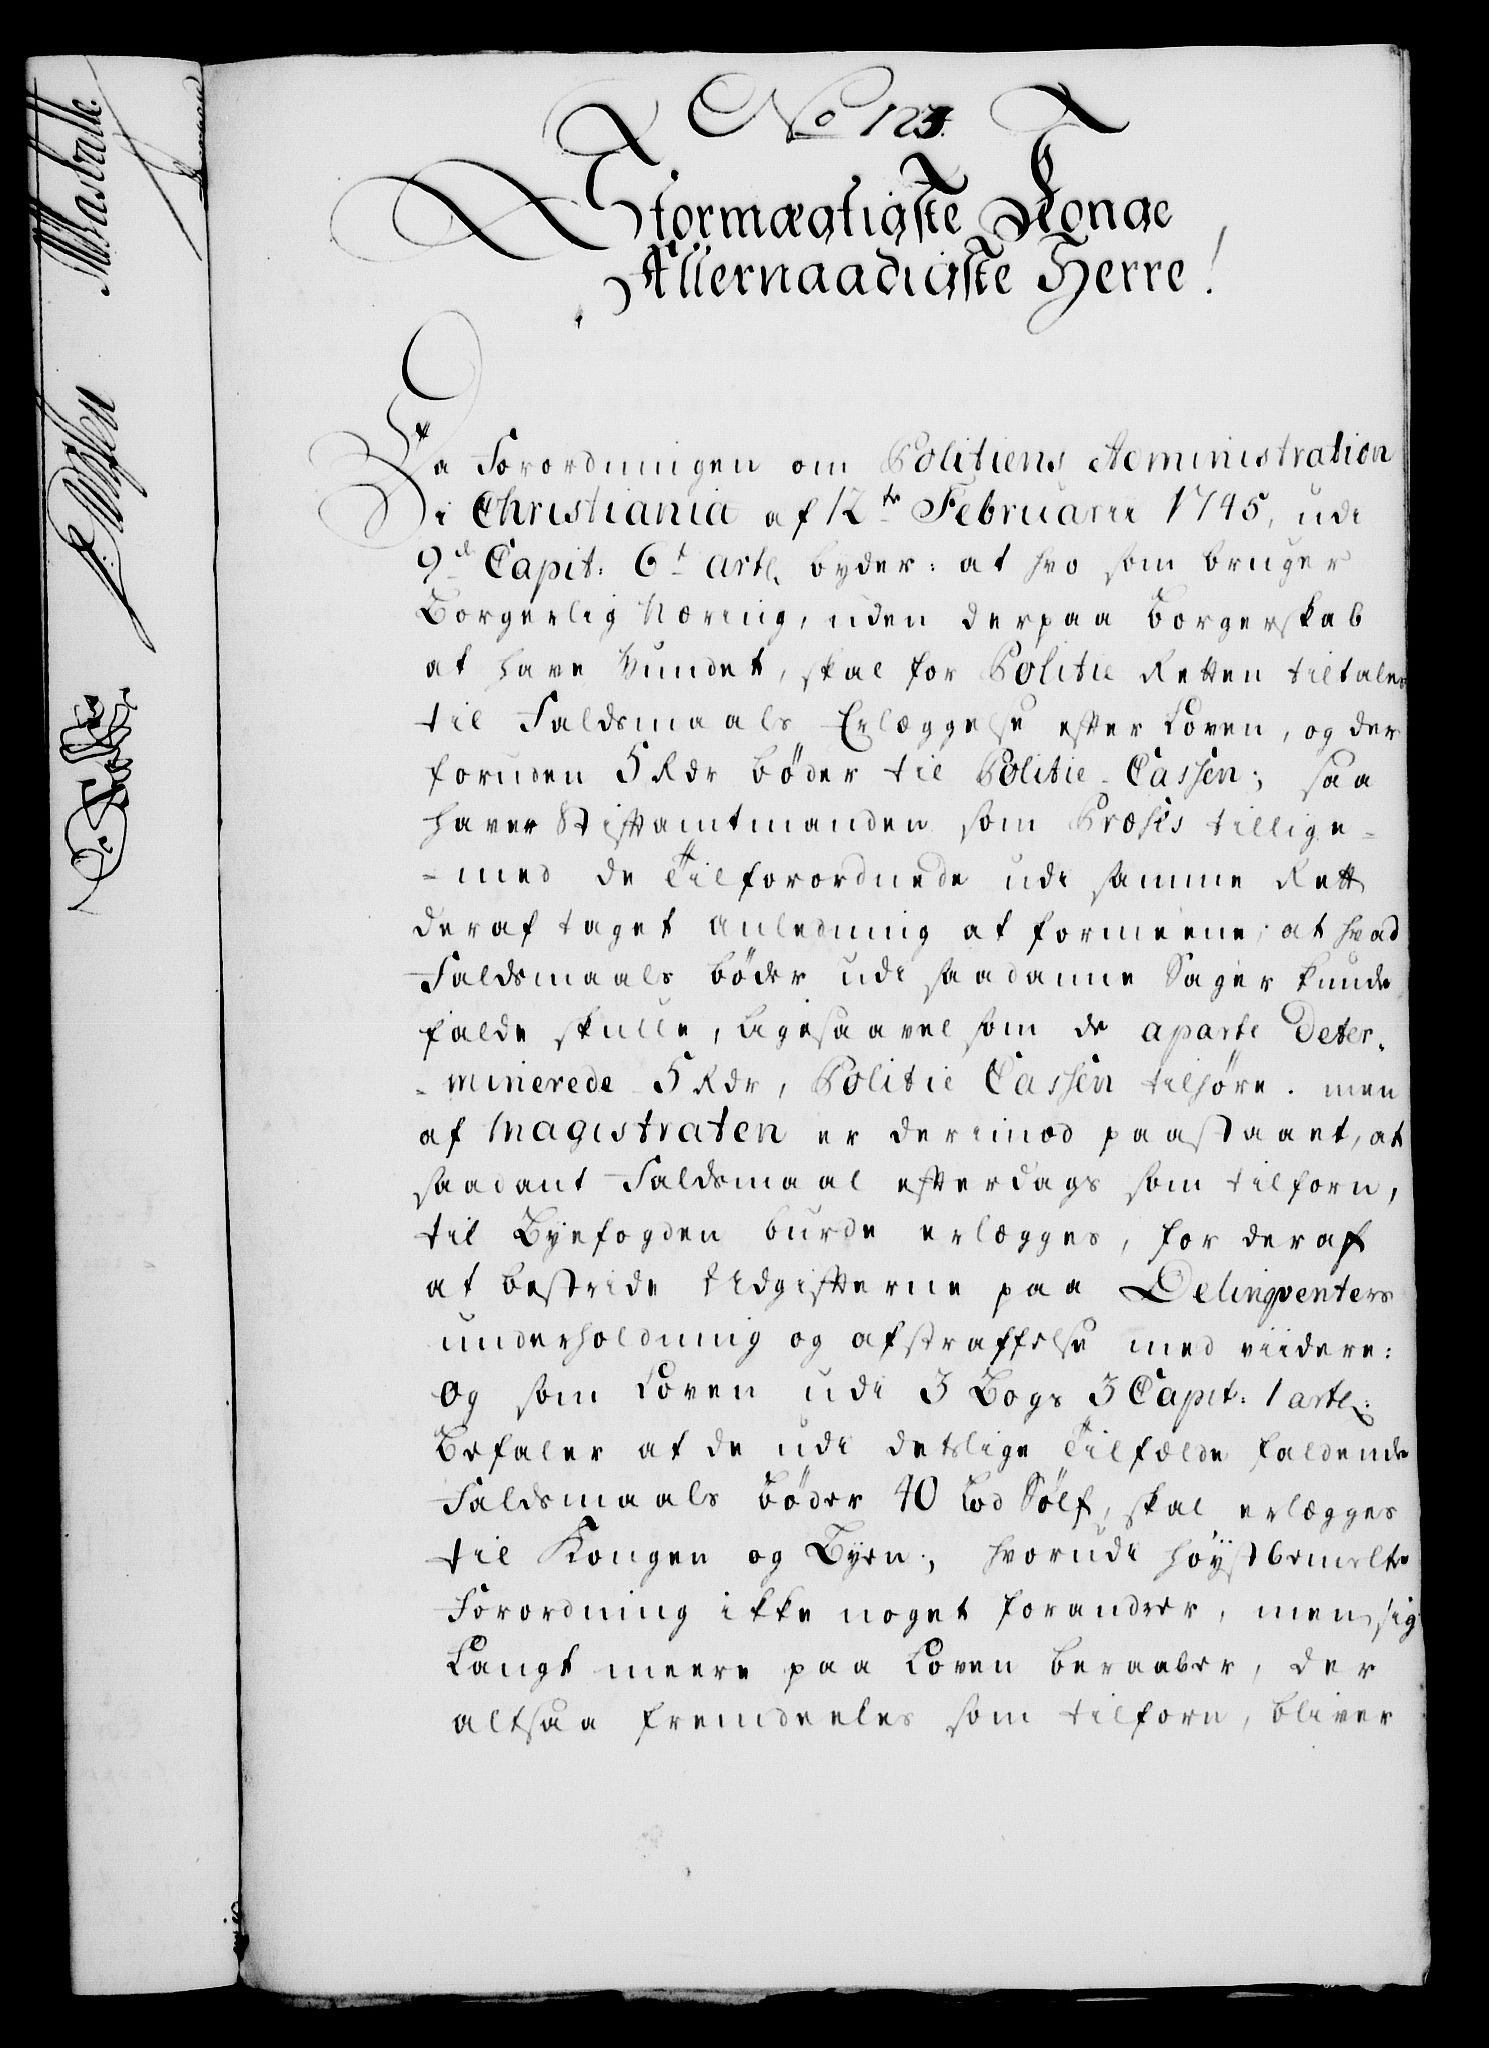 No 123.
Stormægtigste Konge
Allernaadigste Herre!
Da Forordningen om Politiens Administration
i Christiania af 12te Februarii 1745, udi
9d Capit: 6t artl. byder: at hvo som bruger
Borgerlig Næring, uden derpaa Borgerskab
at have Vundet, skal for Politie Retten tiltales
til Faldsmaals Erlæggelse efter Loven, og der
foruden 5 Rdr bøder til Politie-Cassen; saa
haver Stiftamtmanden som Præses tillige-
- med de Tilforordnede udi samme Rett
deraf taget Anledning at formeene, at hvad
Faldsmaals bøder udi saadanne Sager kunde
falde skulle, ligesaavel som de aparte Deter-
- minerede 5 Rdr, Politie Cassen tilhøre. men
af Magistraten er derimod paastaaet, at
saadant Faldsmaal efterdags som tilforn,
til Byefogden burde erlægges, for deraf
at bestride Udgifterne paa Delinqventers
underholdning og afstraffelse med viidere:
Og som Loven udi 3 Bogs 3 Capit: 1 artl:
Befaler at de udi detslige Tilfælde faldende
Faldsmaals bøder 40 Lod Sølf, skal erlægges
til Kongen og Byen; hvorudi høystbemelte
Forordning ikke noget forandrer, men sig
Langt meere paa Loven beraaber, der
altsaa fremdeeles som tilforn, bliver